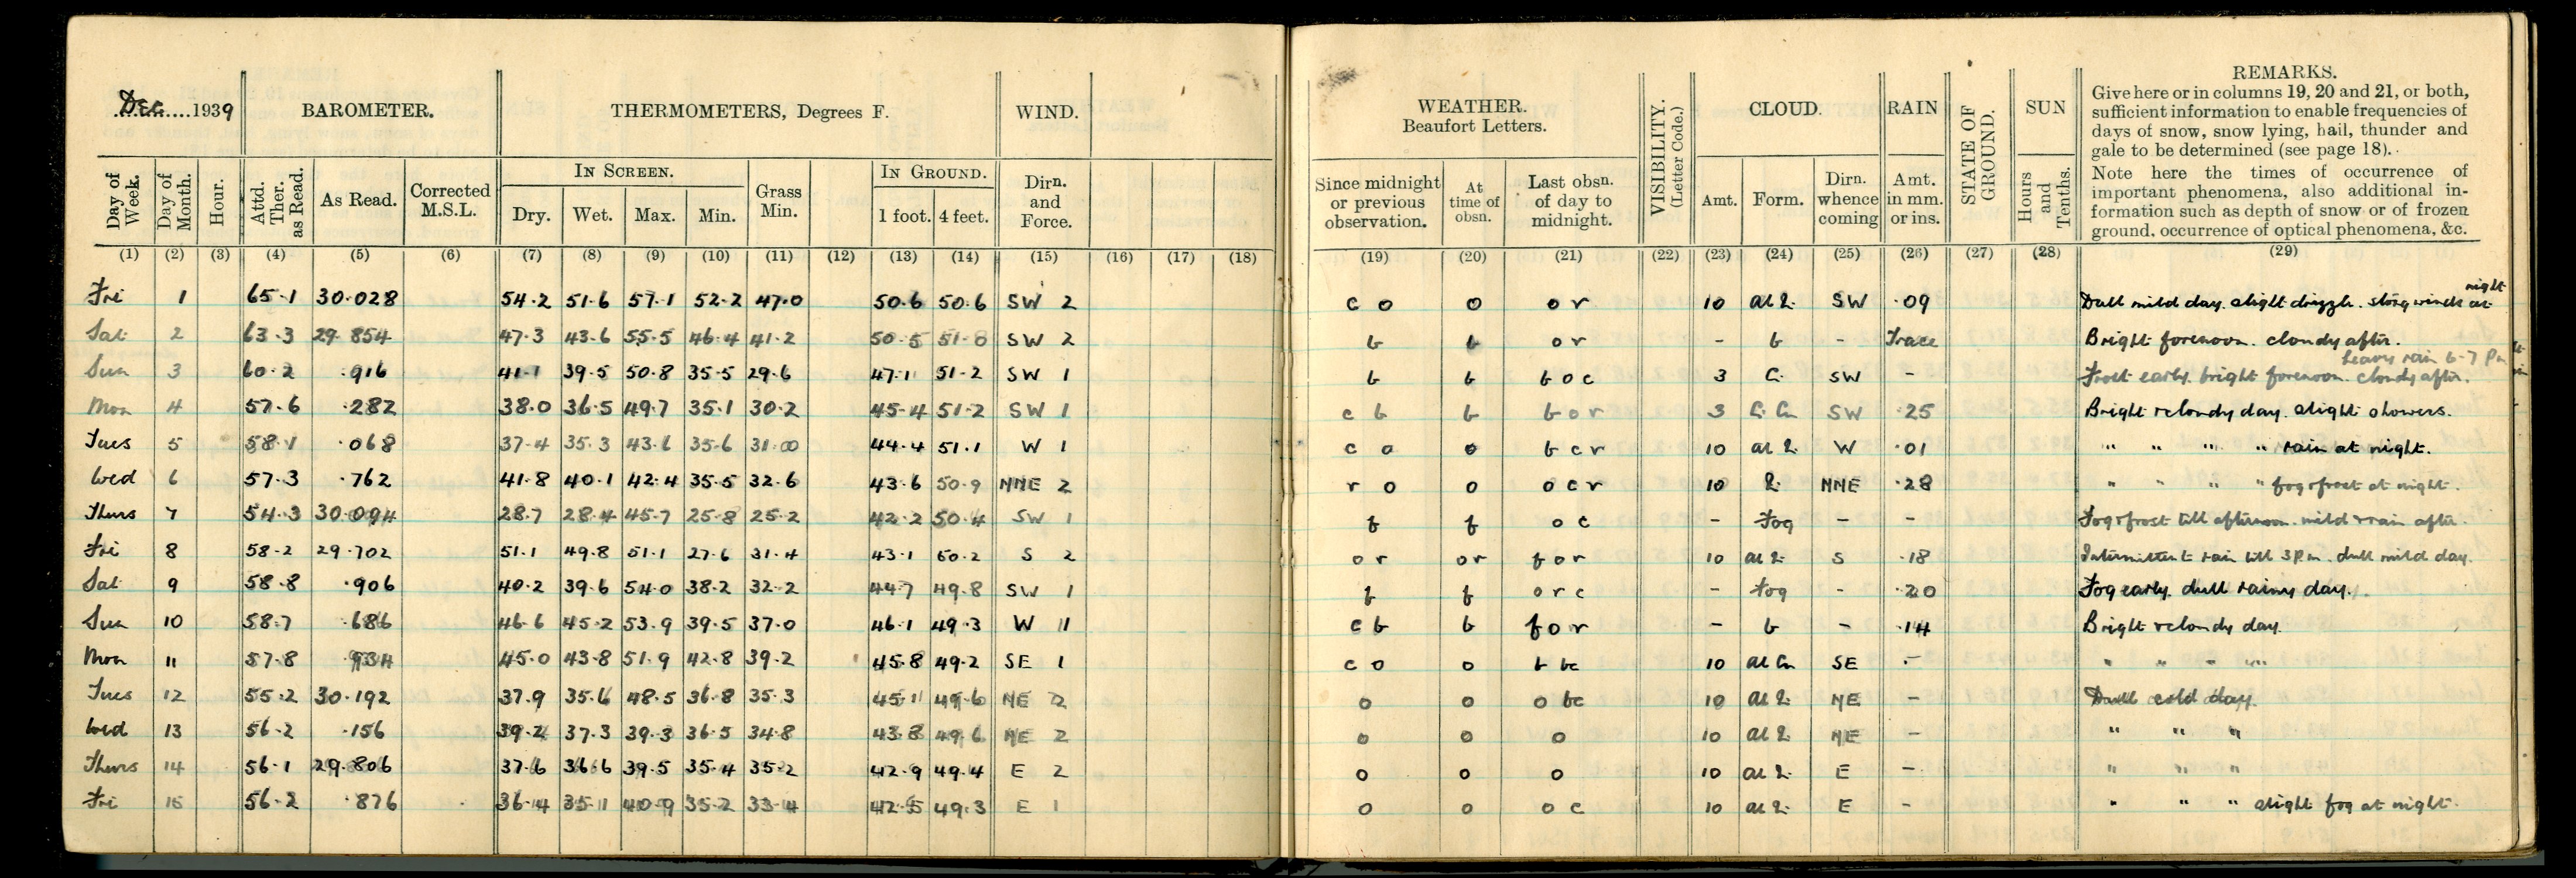 Dec 1939 BAROMETER. THERMOMETERS, Degrees F. WIND.
Day of Week. Day of Month. Hour. Attd. Ther. as Read. As Read. Corrected M.S.L. IN SCREEN. Dry. Wet. Max. Min. Grass Min. IN GROUND. 1 foot. 4 feet. Dirn. and Force.
(1) (2) (3) (4) (5) (6) (7) (8) (9) (10) (11) (12) (13) (14) (15) (16) (17) (18)
Fri 1 65.1 30.028 54.2 51.6 57.1 52.2 47.0 50.6 50.6 SW 2
Sat 2 63.3 29.854 47.3 43.6 55.5 46.4 41.2 50.5 51.8 SW 2
Sun 3 60.2 .916 41.1 39.5 50.8 35.5 29.6 47.1 51.2 SW 1
Mon 4 57.6 .282 38.0 36.5 49.7 35.1 30.2 45.4 51.2 SW 1
Tues 5 58.1 .068 37.4 35.3 43.6 35.6 31.00 44.4 51.1 W 1
Wed 6 57.3 .762 41.8 40.1 42.4 35.5 32.6 43.6 50.9 NNE 2
Thurs 7 54.3 30.094 28.7 28.4 45.7 25.8 25.2 42.2 50.4 SW 1
Fri 8 58.2 29.702 51.1 49.8 51.1 27.6 31.4 43.1 50.2 S 2
Sat 9 58.8 .906 40.2 39.6 54.0 38.2 32.2 44.7 49.8 SW 1
Sun 10 58.7 .686 46.6 45.2 53.9 39.5 37.0 46.1 49.3 W 1
Mon 11 57.8 .934 45.0 43.8 51.9 42.8 39.2 45.8 49.2 SE 1
Tues 12 55.2 30.192 37.9 35.6 48.5 36.8 35.3 45.1 49.6 NE 2
Wed 13 56.2 .156 39.2 37.3 39.3 36.5 34.8 43.8 49.6 NE 2
Thurs 14 56.1 29.806 37.6 36.6 39.5 35.4 35.2 42.9 49.4 E 2
Fri 15 56.2 .876 36.4 35.1 40.9 35.2 33.4 42.5 49.3 E 1
WEATHER. Beaufort Letters. VISIBILITY. (Letter Code.) CLOUD. RAIN STATE OF GROUND. SUN REMARKS.
Give here or in columns 19, 20 and 21, or both,
sufficient information to enable frequencies of
days of snow, snow lying, hail, thunder and
gale to be determined (see page 18).
Note here the times of occurrence of
important phenomena, also additional in-
formation such as depth of snow or of frozen
ground, occurrence of optical phenomena, &c.
Since midnight or previous observation. At time of obsn. Last obsn. of day to midnight. Amt. Form. Dirn. whence coming Amt. in mm. or ins. Hours and Tenths.
(19) (20) (21) (22) (23) (24) (25) (26) (27) (28) (29)
c o o o r 10 al 2. SW .09 Dull mild day. slight drizzle. strong winds at night
b b o r - b - Trace Bright forenoon. cloudy after.
heavy rain 6-7 Pm
b b b o c 3 C. SW - Frost early. bright forenoon. cloudy after.
c b b b o r 3 C. Cu SW .25 Bright & cloudy day. slight showers.
c o o b c r 10 al 2. W .01 " " " " rain at night.
r o o o c r 10 2. NNE .28 " " " " fog & frost at night.
f f o c - Fog - - Fog & frost till afternoon. mild & rain after.
o r o r f o r 10 al 2. S .18 Intermittent rain till 3 P.m. dull mild day.
f f o r c - fog - .20 Fog early. dull rainy day.
c b b f o r - b - .14 Bright & cloudy day.
c o o b bc 10 al Cu SE - " " " "
o o o bc 10 al 2. NE - Dull cold day.
o o o 10 al 2. NE - " " "
o o o 10 al 2. E - " " "
o o o c 10 al 2. E - " " " slight fog at night.